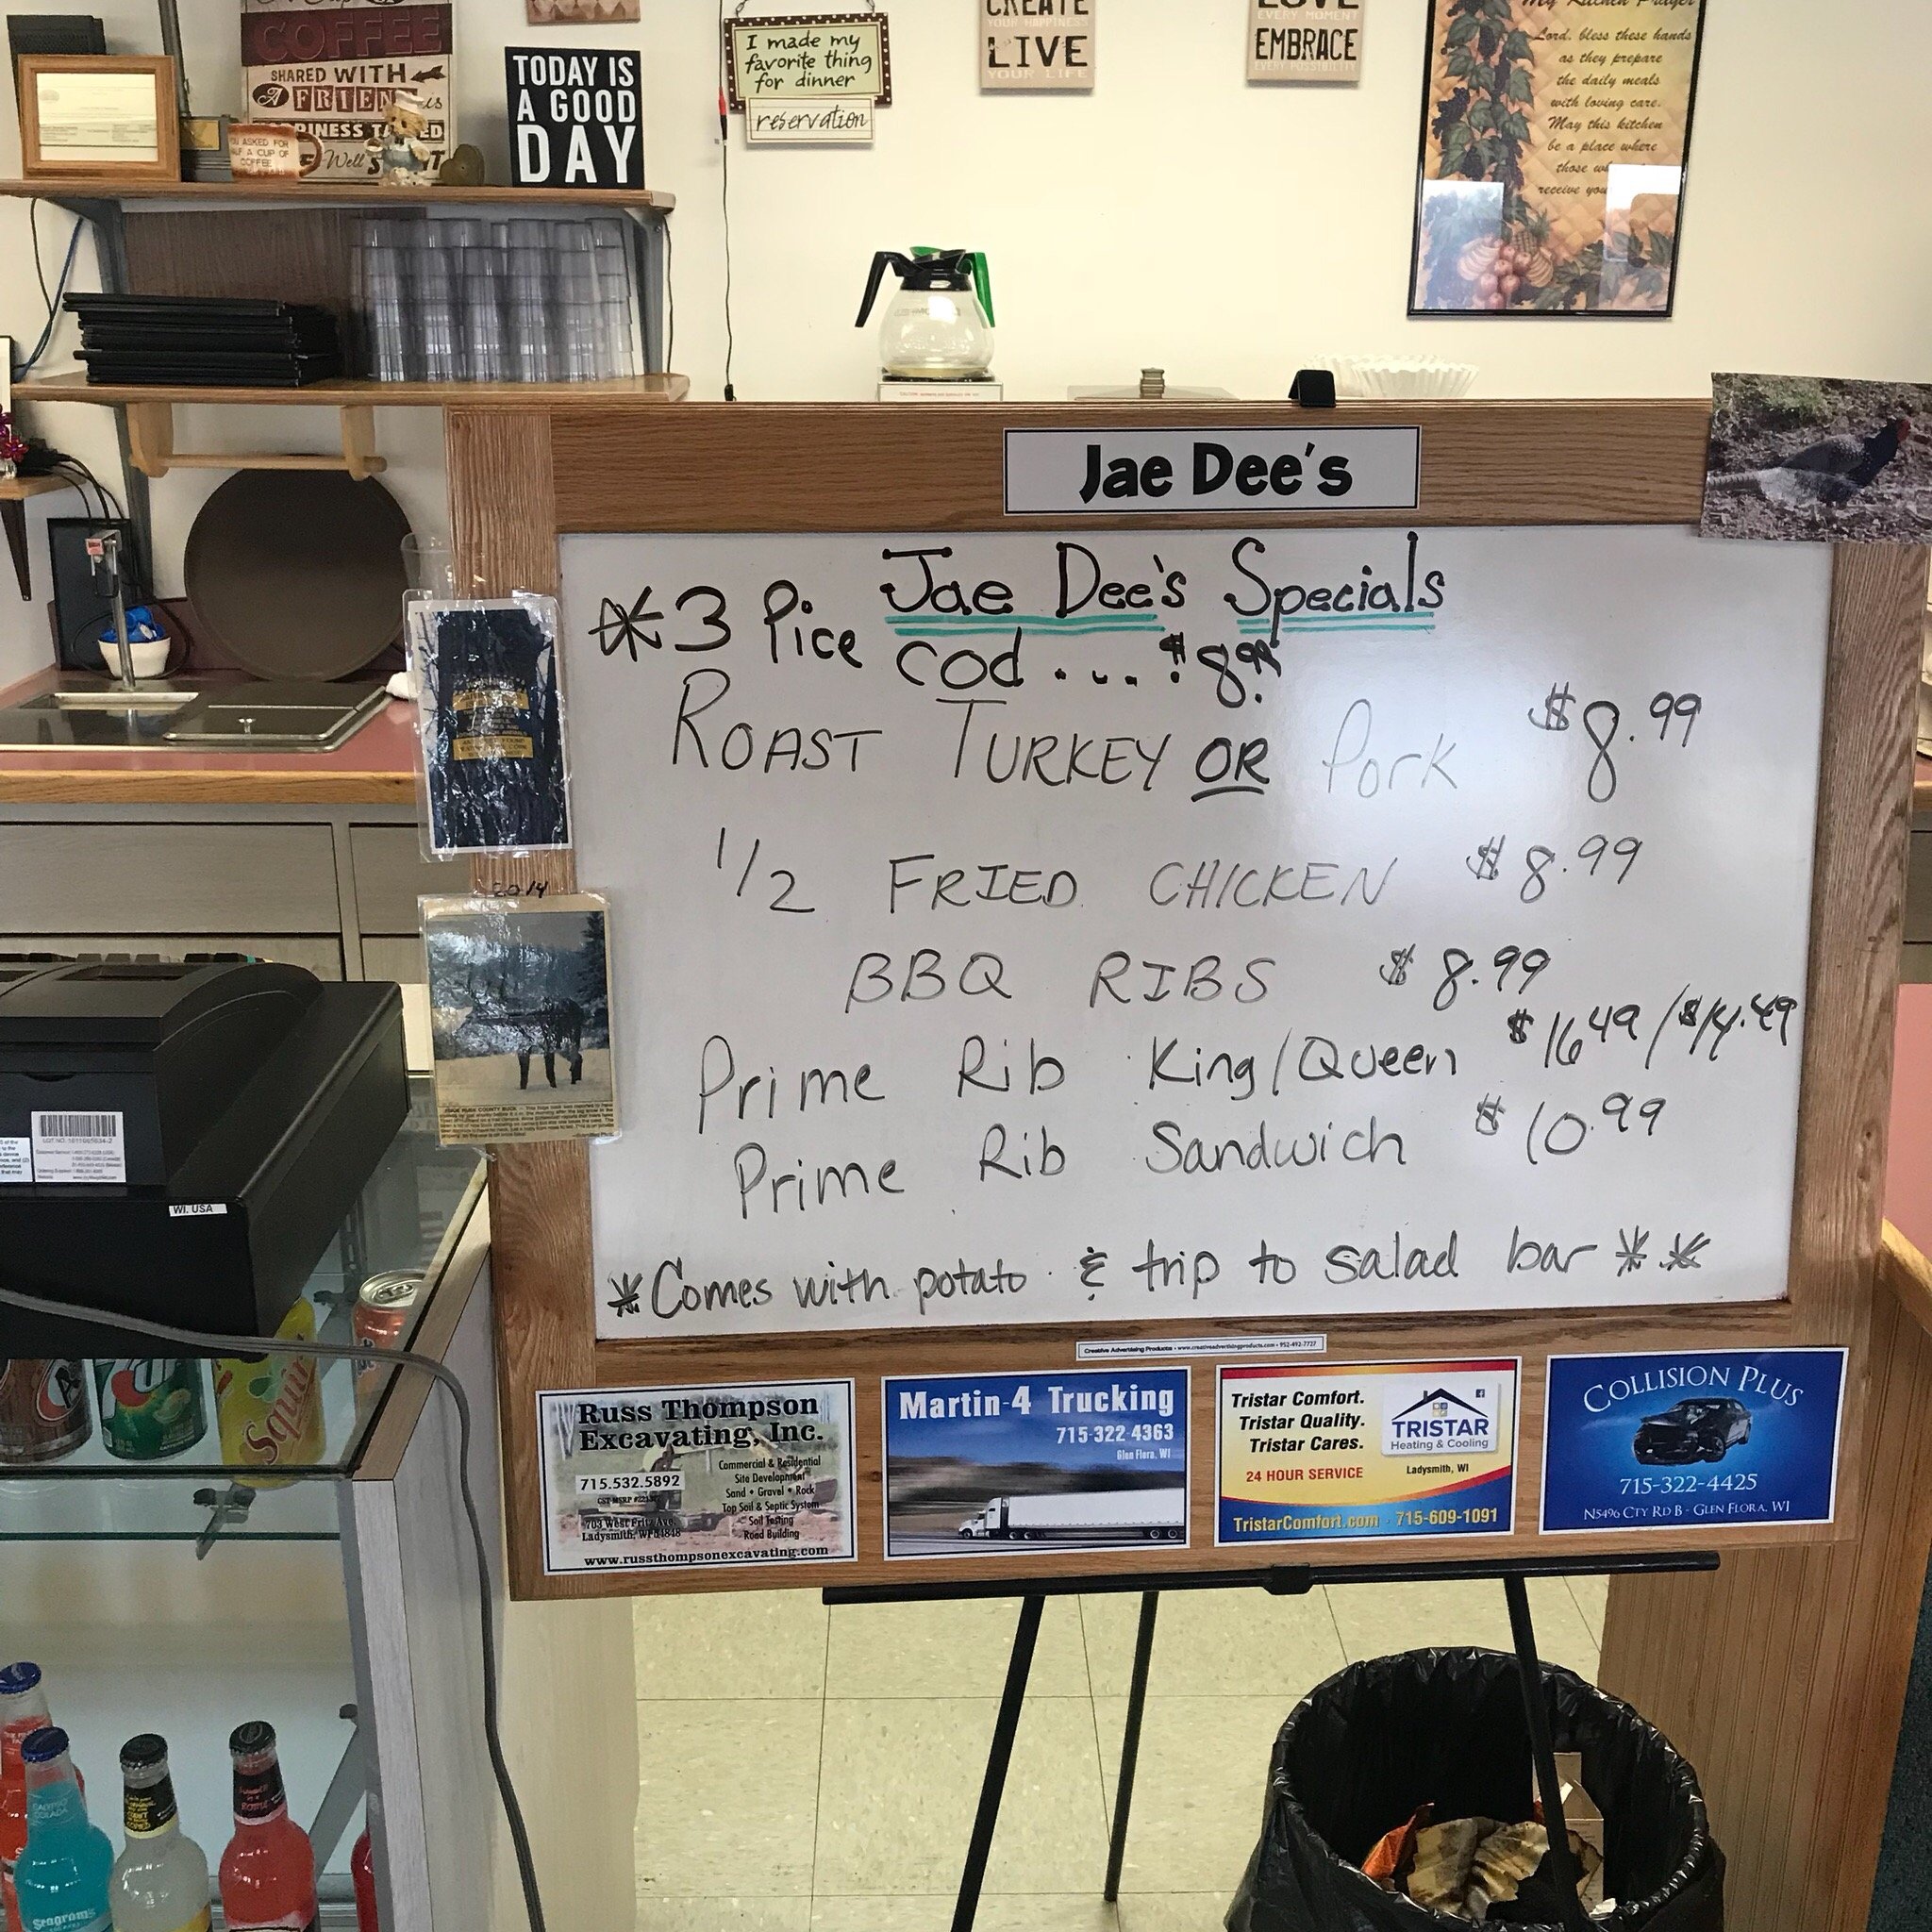 COFFEE
SHARED WITH
A FRIEND is
HAPPINESS TASTED
Well SPENT
YOU ASKED FOR
HALF A CUP OF
COFFEE
TODAY IS
A GOOD
DAY
I made my
favorite thing
for dinner
reservation
CREATE
YOUR HAPPINESS
LIVE
YOUR LIFE
LOVE
EVERY MOMENT
EMBRACE
EVERY POSSIBILITY
My Kitchen Prayer
Lord, bless these hands
as they prepare
the daily meals
with loving care.
May this kitchen
be a place where
those
receive
Jae Dee's
Jae Dee's Specials
*3 Pice cod....$8.99
ROAST TURKEY OR Pork $8.99
1/2 FRIED CHICKEN $8.99
BBQ RIBS $8.99
Prime Rib King/Queen $16.49/$14.49
Prime Rib Sandwich $10.99
*Comes with potato & trip to salad bar **
2014
WI. USA
Creative Advertising Products • www.creativeadvertisingproducts.com • 952-492-7727
Russ Thompson
Excavating, Inc.
715.532.5892
Commercial & Residential
Site Development
Sand • Gravel • Rock
Top Soil & Septic System
Soil Testing
Road Building
703 West Fritz Ave.
Ladysmith, WI 54848
www.russthompsonexcavating.com
Martin-4 Trucking
715-322-4363
Glen Flora, WI
Tristar Comfort.
Tristar Quality.
Tristar Cares.
24 HOUR SERVICE
TRISTAR
Heating & Cooling
Ladysmith, WI
TristarComfort.com • 715-609-1091
COLLISION PLUS
715-322-4425
N5496 CTY RD B - GLEN FLORA, WI
Squirt
CALYPSO
COLADA
Seagram's